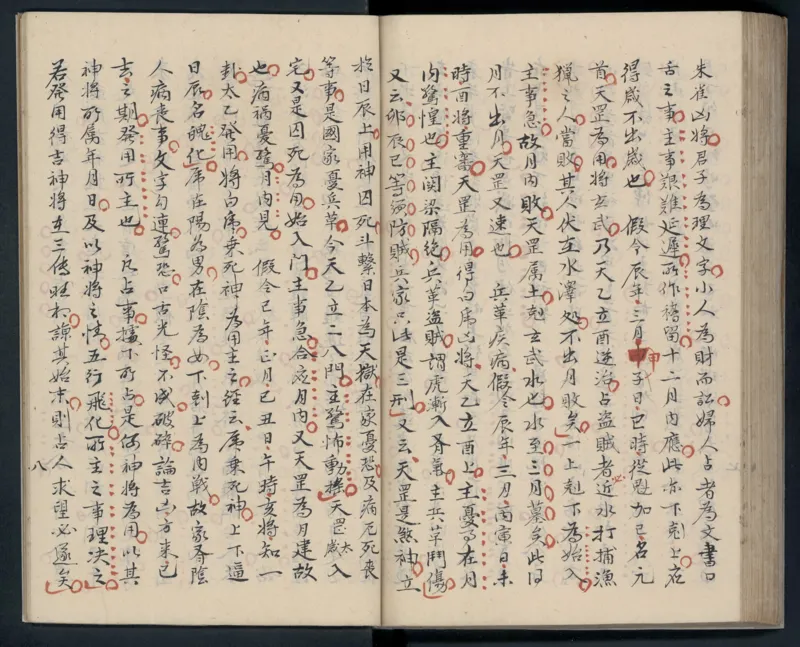 朱雀凶將君子為理文字小人為財而訟婦人占者為文書口
舌之事主事艱難延遲所作稽留十二月內應此亦下剋上
得歲不出歲也 假令辰年三月甲子日巳時從魁加已名元
首天罡為用將玄武乃天乙立酉逆治占盜賊者近水打捕漁
獵之人當敗其人伏在水澤處不出月敗矣一上剋下為始入
主事急故月內敗天罡属土剋玄武水也水至三月墓矣此同
月不出月天罡又速也 兵革疾病假令辰年三月丙寅日未
時酉將重審天罡為用得白虎凶將天乙立酉上主憂事在月
內驚惶也主関梁隔絶兵革盜賊謂虎漸入脊梁主兵革鬥傷
又云卯辰巳等須防賊兵家只此是三刑又云天罡是煞神立
於日辰上用神囚死斗繫日本為天獄在家憂恐及病厄死喪
等事是國家憂兵革今天乙立二八門主驚怖動搖天罡太歲入
宅又是囚死為用始入門主事急合應月內又天罡為月建故
也病禍憂confirm月內見 假令己年正月己丑日午時亥將知一
卦太乙發用將白虎乗死神為用主之經云虎乗死神上下逼
日辰名魄化虎在陽為男在陰為女下剋上為內戰故家有陰
人病喪事文字勾連驚恐口舌光怪不成破碎論吉凶方来已
去之期發用所主也 凡占事據下所占是何神將為用以其
神將所属年月日及以神將之性五行飛化所主之事理决之
若發用得吉神將在三傳旺相諫其始末則占人求望必遂矣
八